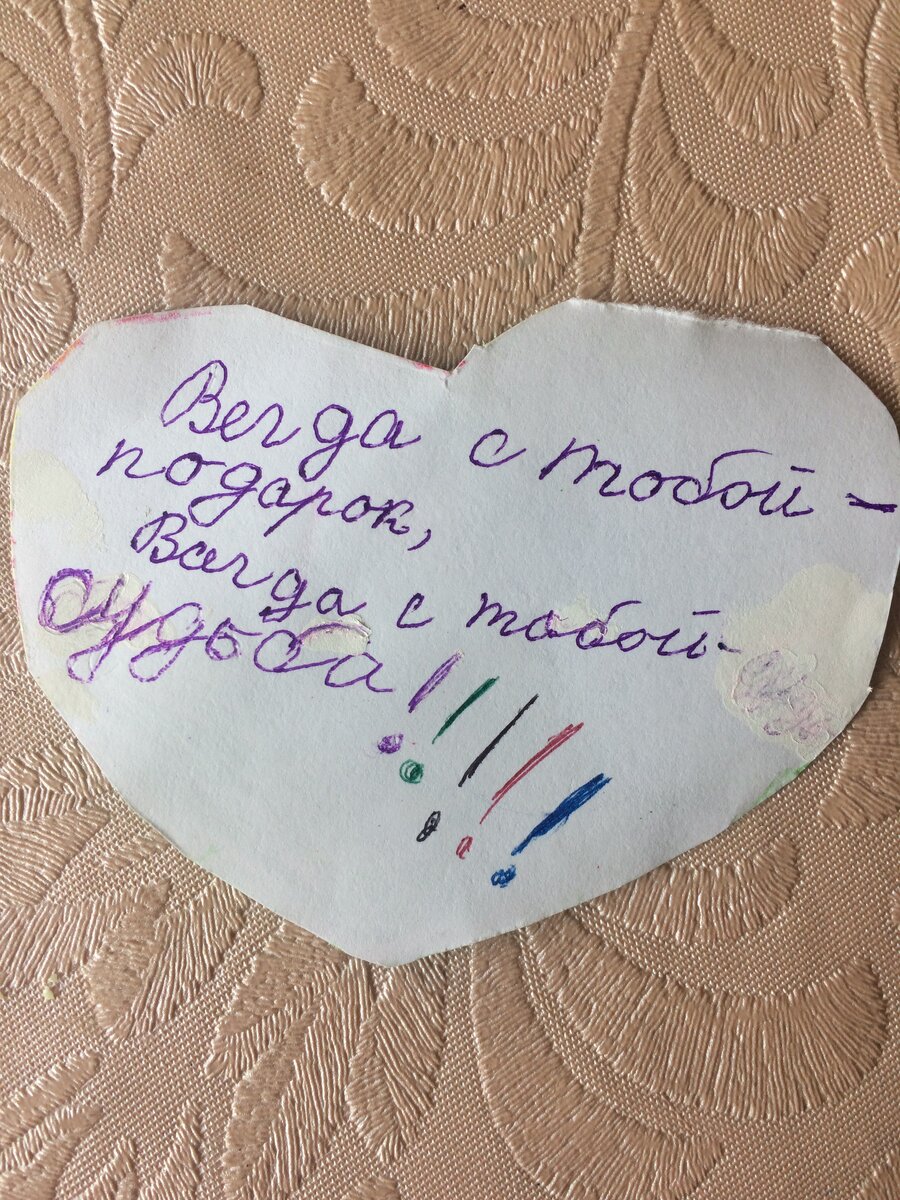 Вегда с тобой -
подарок,
Всегда с тобой -
судьба!!!!!